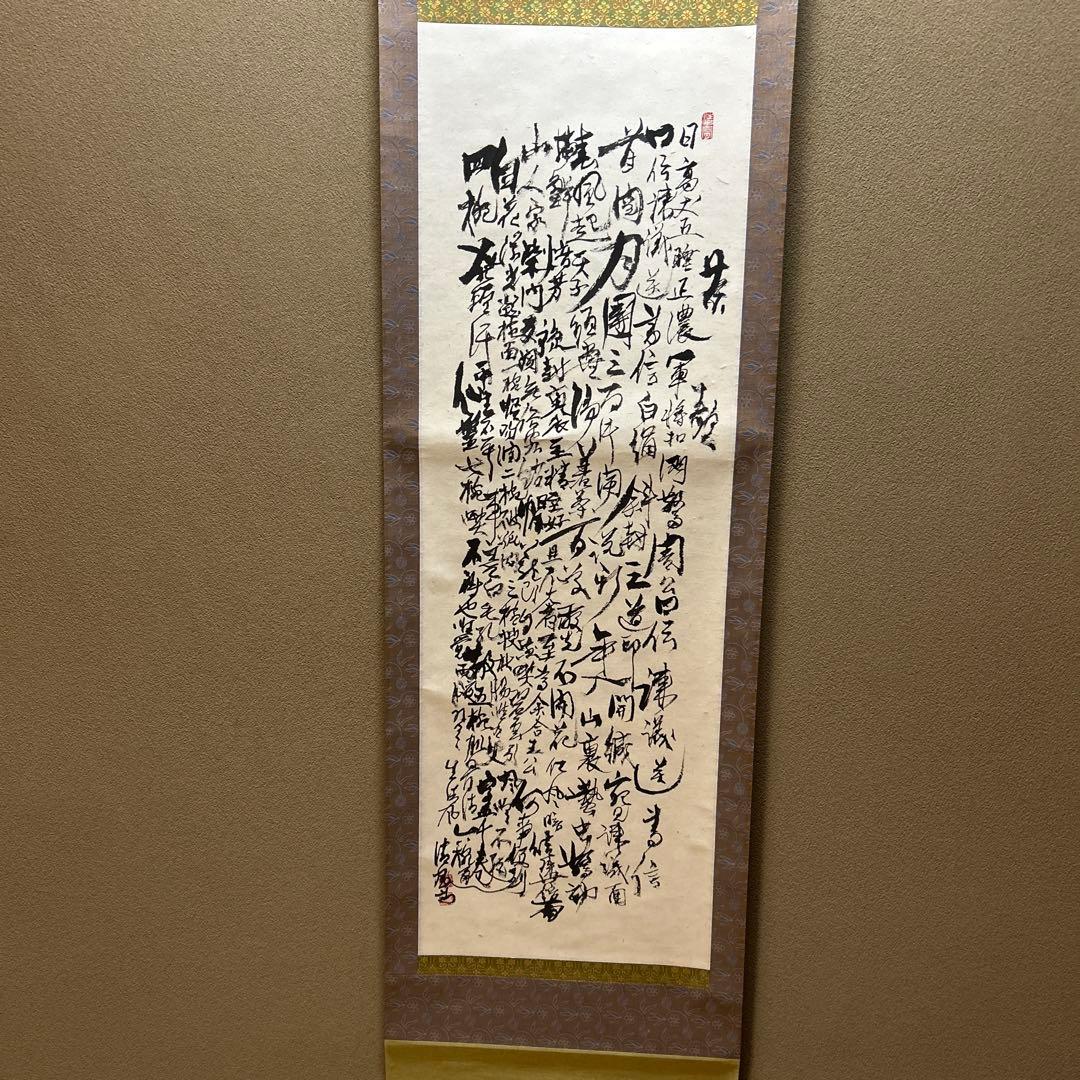 茶歌
日高丈五睡正濃軍將扣門驚周公伝諫議送書信
口伝諫議送書信白絹斜封三道印開緘宛見諫議面
首閲月團三百片聞説新年入山裏蟄虫驚動
春風起天子須嘗陽羨茶百草不敢先開花仁風暗結珠蓓蕾
摘鮮焙芳旋封裹至精至好且不奢至尊余合王公何事便到
山人家柴門反関無俗客紗帽籠頭自煎喫碧雲引風吹不断
白花浮光凝椀面一椀喉吻潤二椀破孤悶三椀捜枯腸惟有文字五千巻
四椀發軽汗平生不平事尽向毛孔散五椀肌骨清六椀通
仙靈七椀喫不得也唯覚両腋習々清風生